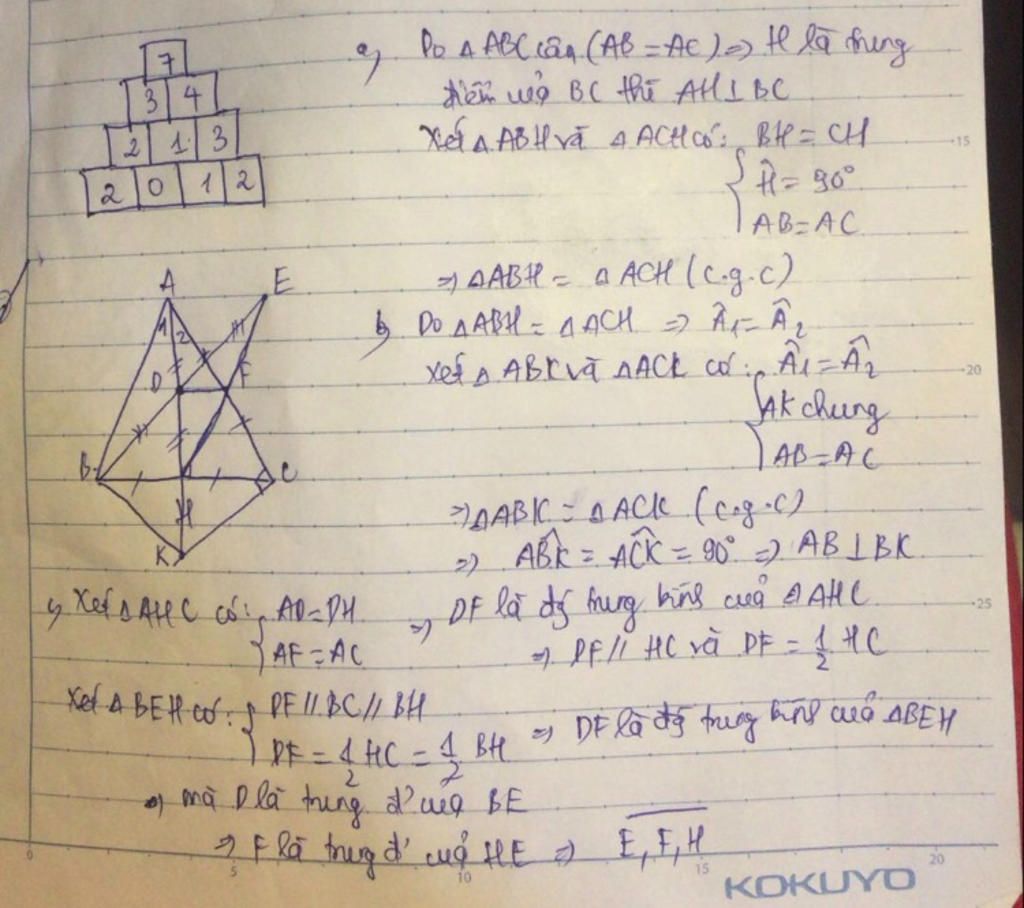 7
3 4
2 1 3
2 0 1 2
a, Do △ABC cân (AB = AC) => H là trung
điểm của BC thì AH⊥BC
Xét △ABH và △ACH có: BH = CH
Ĥ = 90°
AB = AC
=> △ABH = △ACH (c.g.c)
b, Do △ABH = △ACH => Â1 = Â2
Xét △ABK và △ACK có: Â1 = Â2
AK chung
AB = AC
=> △ABK = △ACK (c.g.c)
=> ABK̂ = ACK̂ = 90° => AB ⊥ BK
A E
1 2
D F
B C
H
K
c, Xét △AHC có: AD = DH => DF là đg trung bình của △AHC
AF = AC => DF // HC và DF = 1/2 HC
Xét △BEH có: DF // BC // BH => DF là đg trung bình của △BEH
DF = 1/2 HC = 1/2 BH
=> mà D là trung đ' của BE
=> F là trung đ' của HE => E, F, H
15
20
25
0 5 10 15 20
KOKUYO